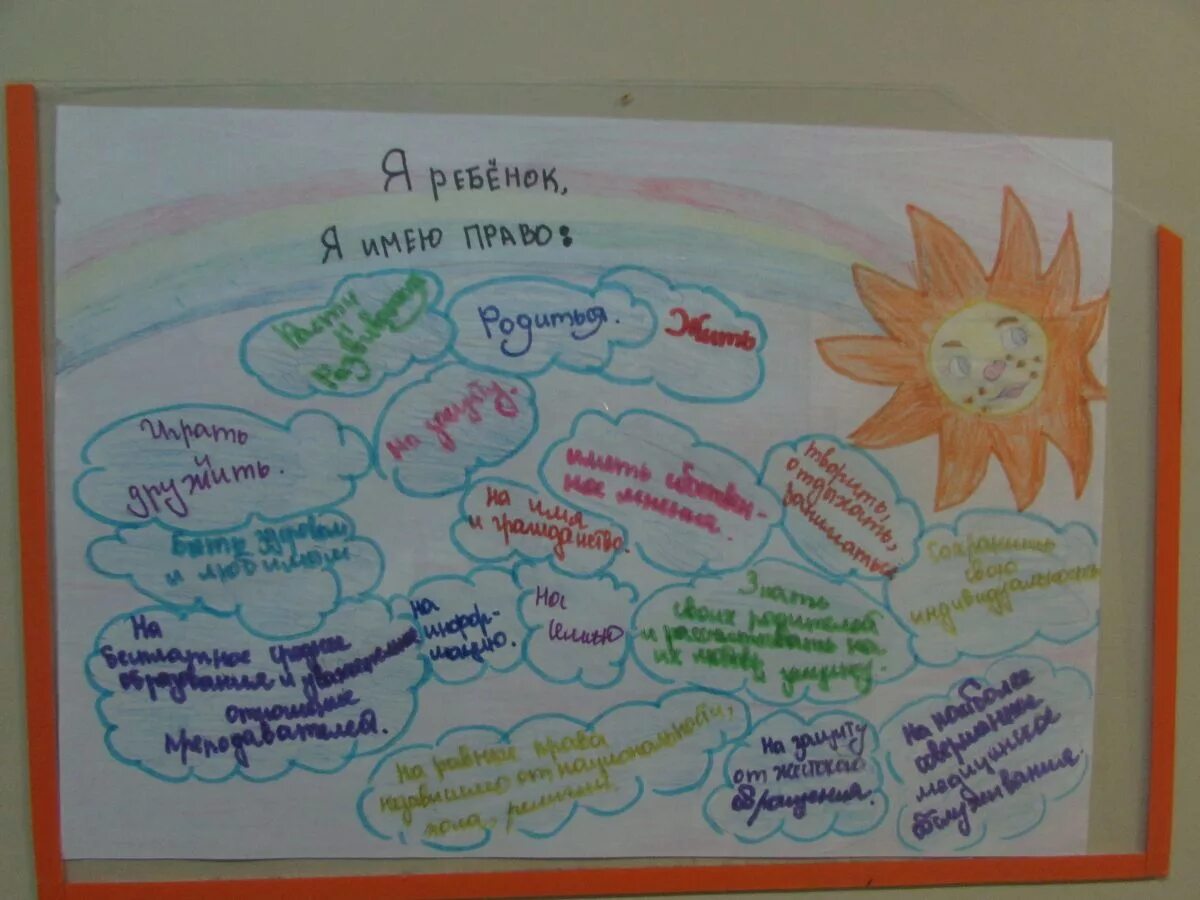 Я РЕБЁНОК,
Я ИМЕЮ ПРАВО:
Расти
и
развиваться
Родиться.
Жить
Играть
и
дружить.
На защиту.
иметь собствен-
ное мнение.
творить,
отдыхать,
заниматься
на имя
и гражданство.
Быть здоровым
и любимым
Сохранить
свою
индивидуальность
На
бесплатное среднее
образования и уважительное
отношение
преподавателей.
на
инфор-
мацию.
семью
Знать
своих родителей
и рассчитывать на
их любовь, защиту.
На равные права
независимо от национальности,
пола, религии.
На защиту
от жестокого
обращения.
На наиболее
совершенное
медицинское
обслуживания.